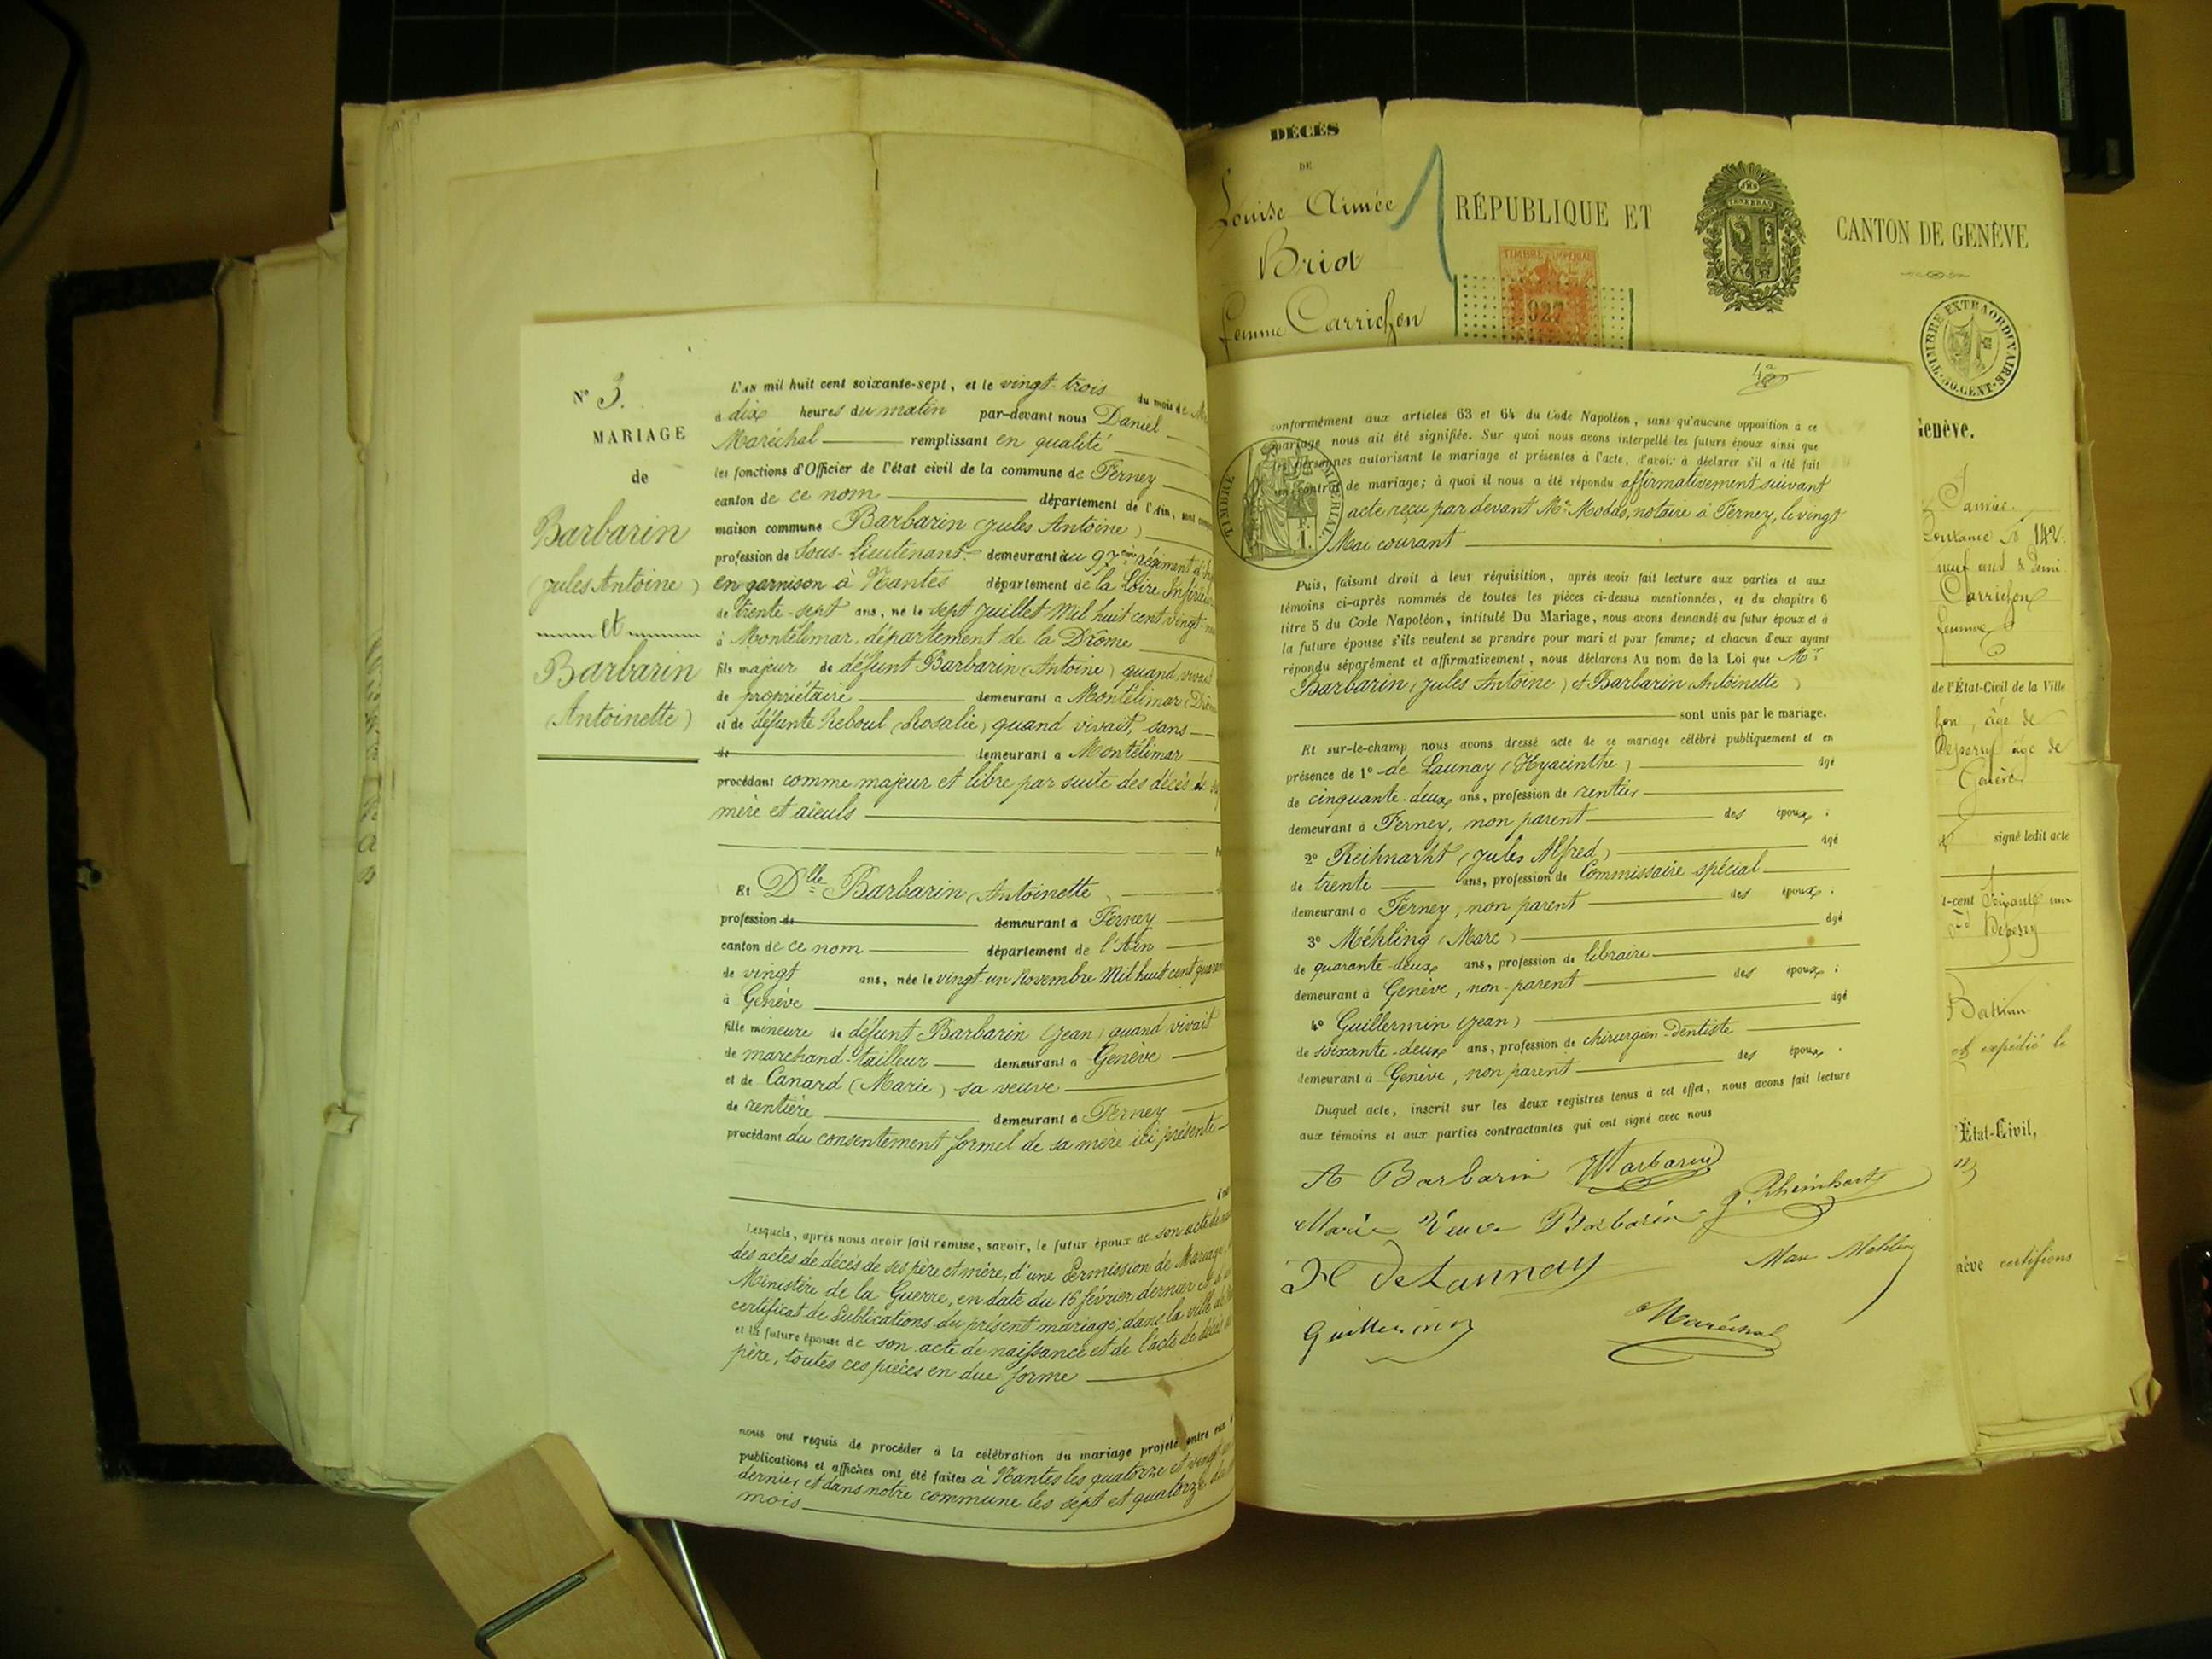 N° 3.
MARIAGE
de
Barbarin
(Jules Antoine)
et
Barbarin
(Antoinette)
L'an mil huit cent soixante-sept, et le vingt-trois du mois de
à dix heures du matin par-devant nous Daniel
Maréchal remplissant en qualité
les fonctions d'Officier de l'état civil de la commune de Ferney
canton de ce nom département de l'Ain, sont
maison commune Barbarin (Jules Antoine)
profession de Sous-Lieutenant demeurant au 97eme régiment
en garnison à Nantes département de la Loire
de trente-sept ans, né le sept Juillet Mil huit cent vingt-
à Montélimar, département de la Drôme
fils majeur de défunt Barbarin (Antoine) quand vivait
de propriétaire demeurant a Montélimar
et de défunte Reboul (Rosalie) quand vivait, sans
de demeurant a Montélimar
procédant comme majeur et libre par suite des décès de
mère et aïeuls
Et Dlle Barbarin (Antoinette)
profession de demeurant a Ferney
canton de ce nom département de l'Ain
de vingt ans, née le vingt-un Novembre Mil huit cent
à Genève
fille mineure de défunt Barbarin (Jean) quand vivait
de marchand-tailleur demeurant a Genève
et de Canard (Marie) sa veuve
de rentière demeurant a Ferney
procédant du consentement formel de sa mère ici présente
Lesquels, après nous avoir fait remise, savoir, le futur époux de son acte de
des actes de décès de ses père et mère, d'une Permission de Mariage
Ministère de la Guerre, en date du 16 février dernier et
certificat de Publications du présent mariage, dans la ville de
et la future épouse de son acte de naissance et de l'acte de décès
père, toutes ces pièces en due forme
nous ont requis de procéder à la célébration du mariage projeté entre eux
publications et affiches ont été faites à Nantes les quatorze et vingt
dernier et dans notre commune les sept et quatorze
mois
DÉCÈS
DE
Louise Aimée
Briot
femme Carrichon
RÉPUBLIQUE ET
CANTON DE GENÈVE
TIMBRE IMPÉRIAL
927
TIMBRE EXTRAORDINAIRE
50 CENT.
conformément aux articles 63 et 64 du Code Napoléon, sans qu'aucune opposition a ce
mariage nous ait été signifiée. Sur quoi nous avons interpellé les futurs époux ainsi que
les personnes autorisant le mariage et présentes à l'acte, d'avoir à déclarer s'il a été fait
un contrat de mariage; à quoi il nous a été répondu affirmativement suivant
acte reçu par devant Me Modas, notaire à Ferney, le vingt
Mai courant
TIMBRE IMPÉRIAL
Puis, faisant droit à leur réquisition, après avoir fait lecture aux parties et aux
témoins ci-après nommés de toutes les pièces ci-dessus mentionnées, et du chapitre 6
titre 5 du Code Napoléon, intitulé Du Mariage, nous avons demandé au futur époux et à
la future épouse s'ils veulent se prendre pour mari et pour femme; et chacun d'eux ayant
répondu séparément et affirmativement, nous déclarons Au nom de la Loi que Mr
Barbarin (Jules Antoine) et Barbarin (Antoinette)
sont unis par le mariage.
Et sur-le-champ nous avons dressé acte de ce mariage célébré publiquement et en
présence de 1° de Launay (Hyacinthe) âgé
de cinquante-deux ans, profession de rentier
demeurant à Ferney, non parent des époux;
2° Reihnarht (Jules Alfred) âgé
de trente ans, profession de Commissaire spécial
demeurant a Ferney, non parent des époux;
3° Méhling (Marc) âgé
de quarante-deux ans, profession de libraire
demeurant à Genève, non-parent des époux;
4° Guillermin (Jean) âgé
de soixante-deux ans, profession de chirurgien-Dentiste
demeurant à Genève, non parent des époux.
Duquel acte, inscrit sur les deux registres tenus à cet effet, nous avons fait lecture
aux témoins et aux parties contractantes qui ont signé avec nous
A Barbarin JBarbarin
Marie Veuve Barbarin J. Rheinhart
H DeLaunay Marc Mehling
Guillermin Maréchal
Genève.
142
neuf
Carrichon
femme
de l'État-Civil de la Ville
âge de
âge de
Genève
signé ledit acte
-cent soixante un
et expédié le
l'État-Civil,
nève certifions